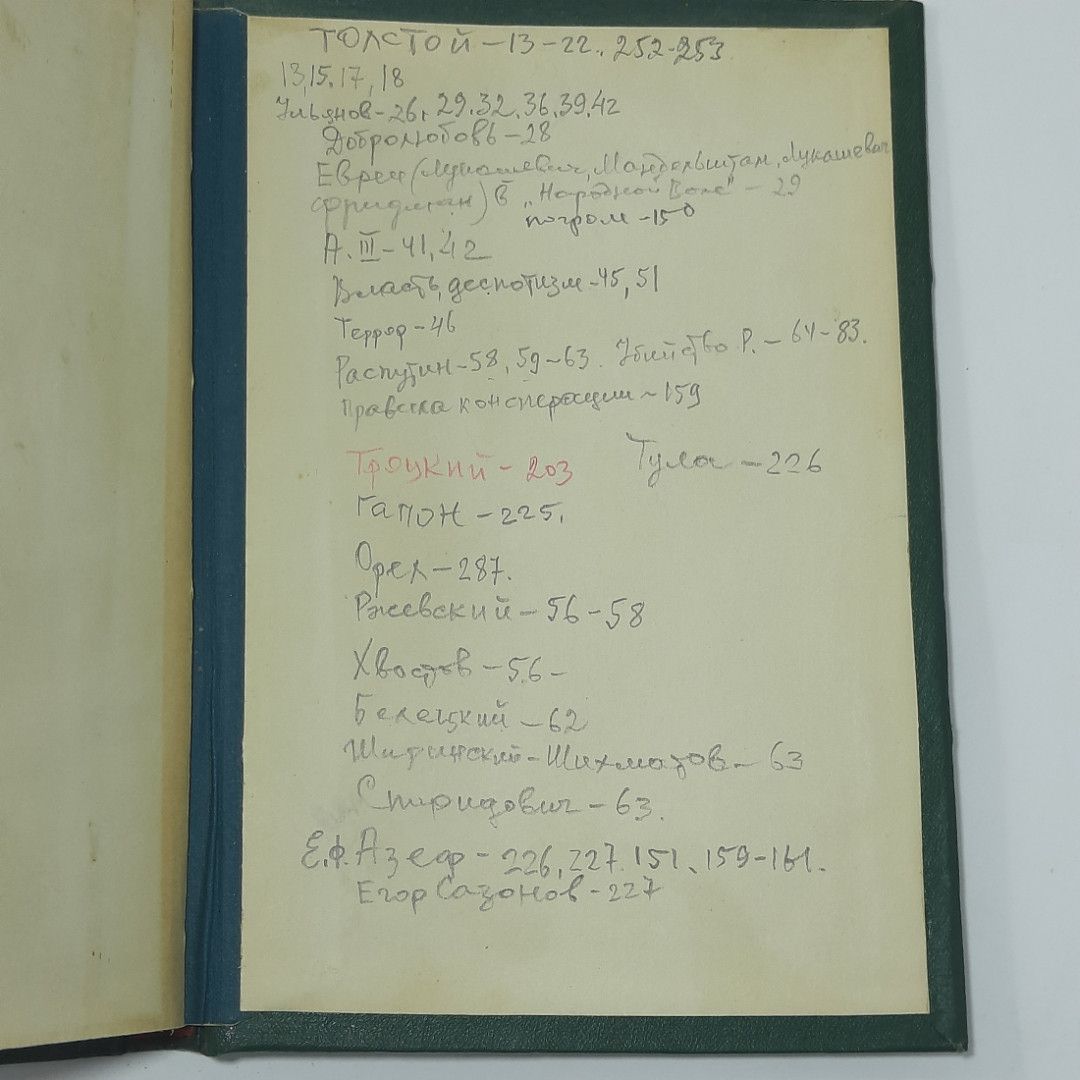 ТОЛСТОЙ – 13 – 22., 252-253
13,15.17,18
Ульянов – 26, 29.32.36.39.42
Добролюбовъ – 28
Евреи (Лукашевич, Мандельштам, Лукашевич
Фридман) в „Народной Воле" – 29
погром – 150
А. III – 41,42
Власть, деспотизм – 45, 51
Террор – 46
Распутин – 58, 59 – 63. Убийство Р. – 64 – 83.
Правила консперации – 159
Троцкий – 203 Тула – 226
Гапон – 225.
Орел – 287.
Ржевский – 56 – 58
Хвостов – 56 –
Белецкий – 62
Ширинский – Шихматов – 63
Спиридович – 63.
Е.Ф. Азеф – 226, 227. 151, 159-161.
Егор Сазонов – 227